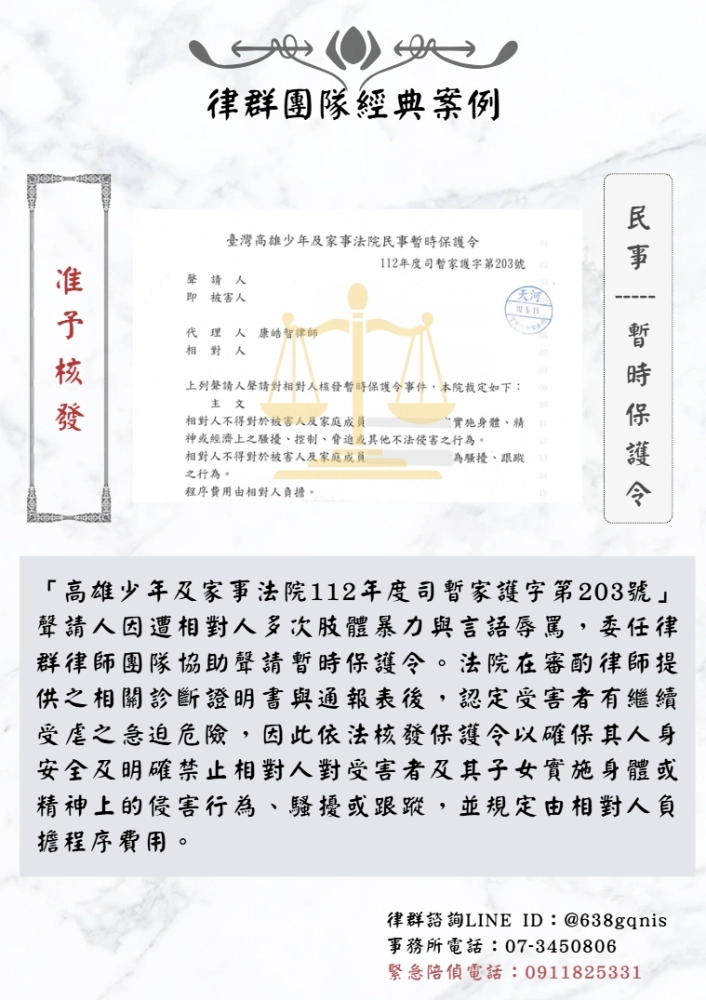 律群團隊經典案例
准予核發
臺灣高雄少年及家事法院民事暫時保護令
112年度司暫家護字第203號
聲請人
即被害人
代理人 康皓智律師
相對人
上列聲請人聲請對相對人核發暫時保護令事件，本院裁定如下：
主文
相對人不得對於被害人及家庭成員 實施身體、精
神或經濟上之騷擾、控制、脅迫或其他不法侵害之行為。
相對人不得對於被害人及家庭成員 為騷擾、跟蹤
之行為。
程序費用由相對人負擔。
天河
民事-----暫時保護令
「高雄少年及家事法院112年度司暫家護字第203號」
聲請人因遭相對人多次肢體暴力與言語辱罵，委任律
群律師團隊協助聲請暫時保護令。法院在審酌律師提
供之相關診斷證明書與通報表後，認定受害者有繼續
受虐之急迫危險，因此依法核發保護令以確保其人身
安全及明確禁止相對人對受害者及其子女實施身體或
精神上的侵害行為、騷擾或跟蹤，並規定由相對人負
擔程序費用。
律群諮詢LINE ID：@638gqnis
事務所電話：07-3450806
緊急陪偵電話：0911825331